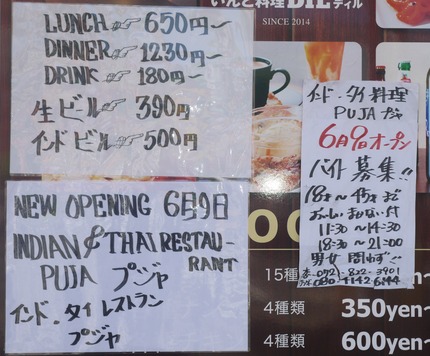 LUNCH☞650円〜
DINNER☞1230円〜
DRINK☞180円〜
生ビール☞390円
インドビル☞500円
NEW OPENING 6月9日
INDIAN & THAI RESTAU-
RANT
PUJA プジャ
インド.タイレストラン
プジャ
いんど料理 DIL ディル
SINCE 2014
インド.タイ料理
PUJA プジャ
6月9日オープン
バイト募集!!
18才〜45才まで
11:30〜14:30
18:30〜21:00
男女問わず!!
072-822-3901
080-4142-6144
15種
350yen〜
4種類
600yen〜
4種類